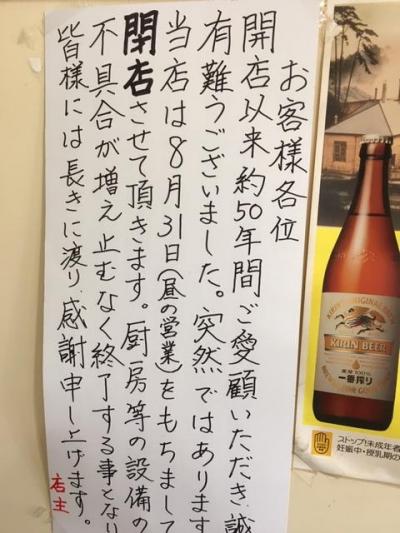 お客様各位
開店以来約50年間ご愛顧いただき、誠
有難うございました。突然ではあります
当店は8月31日(昼の営業)をもちまして
閉店させて頂きます。厨房等の設備の
不具合が増え止むなく終了する事となり
皆様には長きに渡り、感謝申し上げます。
店主
KIRIN BEER
麦芽100%
一番搾り
ストップ!未成年者
妊娠中・授乳期の